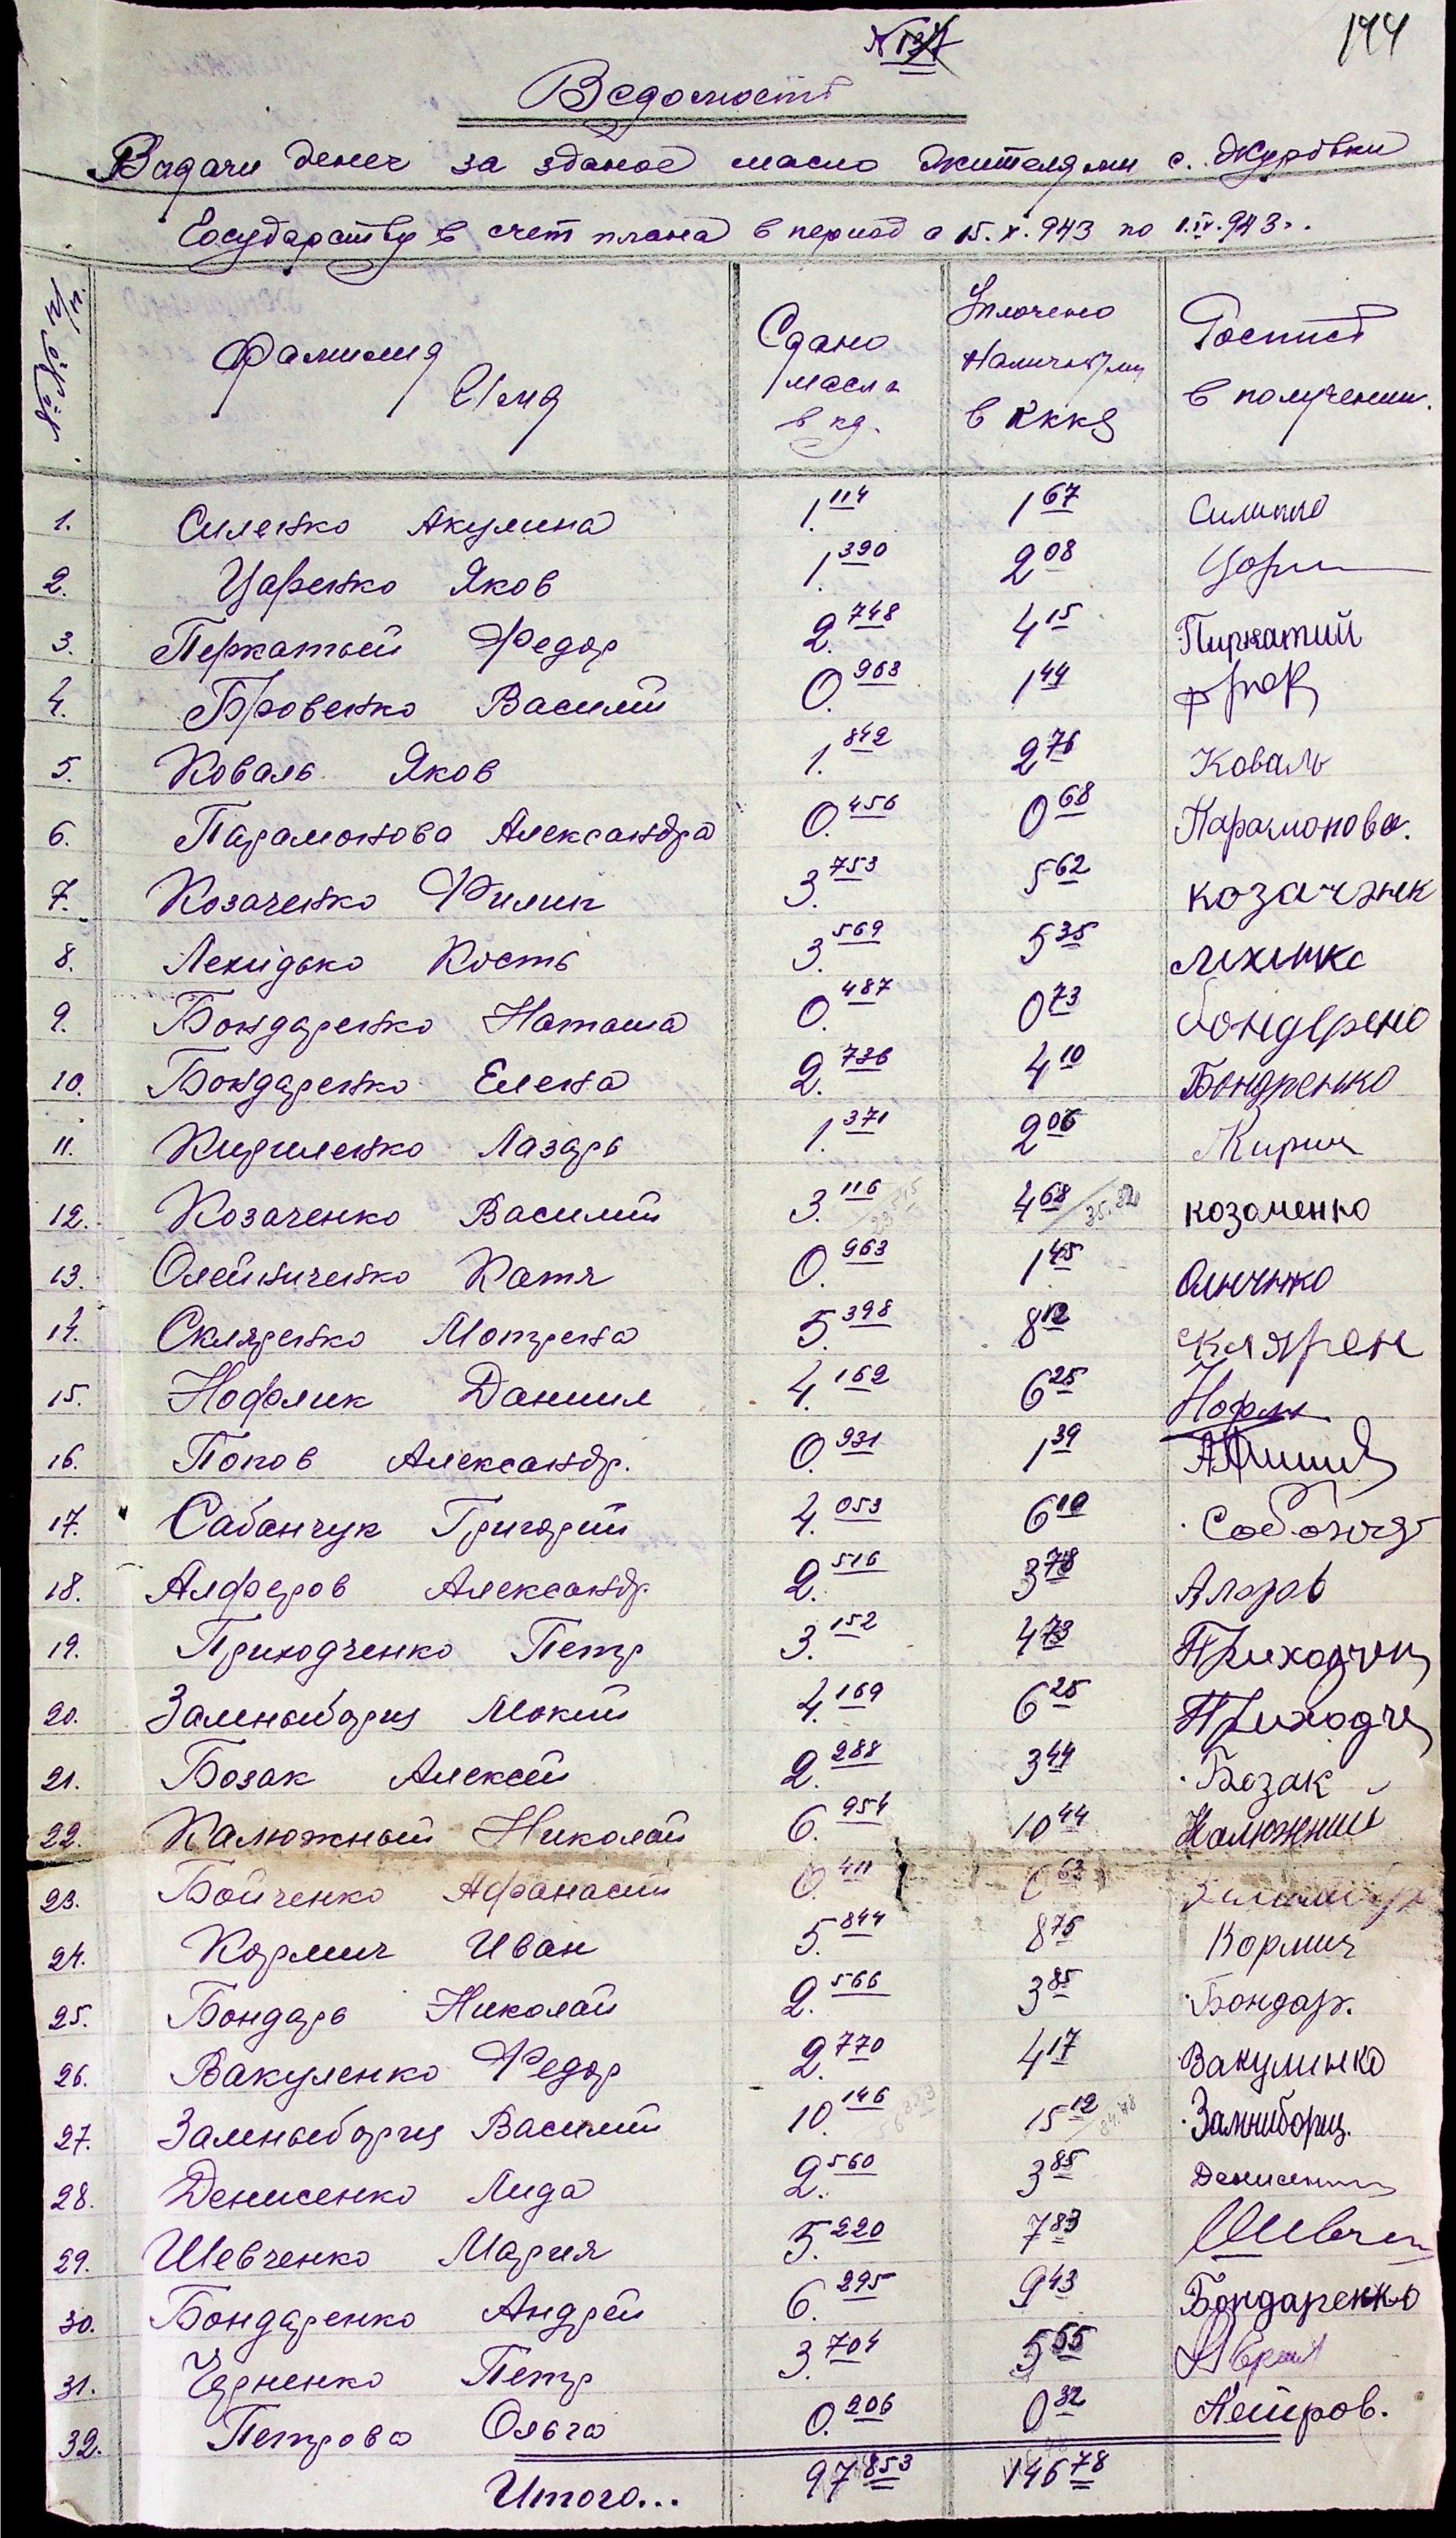 144
Ведомость
Видачи денег за зданое масло жителями с. Журовки
Государству в счет плана в период с 15.X.943 по 1.IV.943 г.
№№ п/п. Фамилия Имя Сдано масла в кг. Уплочено Наличными в РККЯ Роспись в получении.
1. Силенко Акулина 1.114 1 67 Силинко
2. Царенко Яков 1.390 2 08 Цари
3. Перкатый Федор 2.748 4 15 Пиркатий
4. Бровенко Василий 0.963 1 44
5. Коваль Яков 1.842 2 76 Коваль
6. Парамонова Александра 0.456 0 68 Парамонова.
7. Козаченко Филип 3.753 5 62 козачэнк
8. Лехидько Кость 3.569 5 35
9. Бондаренко Наташа 0.487 0 73 бондрено
10. Бондаренко Елена 2.736 4 10 Бондренко
11. Кириленко Лазарь 1.371 2 06 Кирил
12. Козаченко Василий 3.116 4 68 35.82 козаченко
13. Олейниченко Катя 0.963 1 45 Олнченко
14. Скляренко Мотрена 5.398 8 12 склярен
15. Нофлик Даниил 4.162 6 25 Нофли
16. Попов Александр. 0.931 1 39
17. Сабанчук Григорий 4.053 6 10
18. Алферов Александр 2.516 3 78
19. Приходченко Петр 3.152 4 73 Приходчен
20. Замныборщ Мокий 4.169 6 25 Приходче
21. Бозак Алексей 2.288 3 44 Бозак
22. Калюжный Николай 6.954 10 44 Калюжний
23. Бойченко Афанасий 0.411 0 63
24. Кормич Иван 5.844 8 75 Кормич
25. Бондарь Николай 2.566 3 85 Бондар.
26. Вакуленко Федор 2.770 4 17 Вакулинко
27. Замныборщ Василий 10.146 15 12 Замниборщ.
28. Денисенко Лида 2.560 3 85 Денисенко
29. Шевченко Мария 5.220 7 83 Шевчен
30. Бондаренко Андрей 6.295 9 43 Бондаренко
31. Черненко Петр 3.704 5 55
32. Петрова Ольга 0.206 0 32 Петров.
Итого... 97 853 146 78